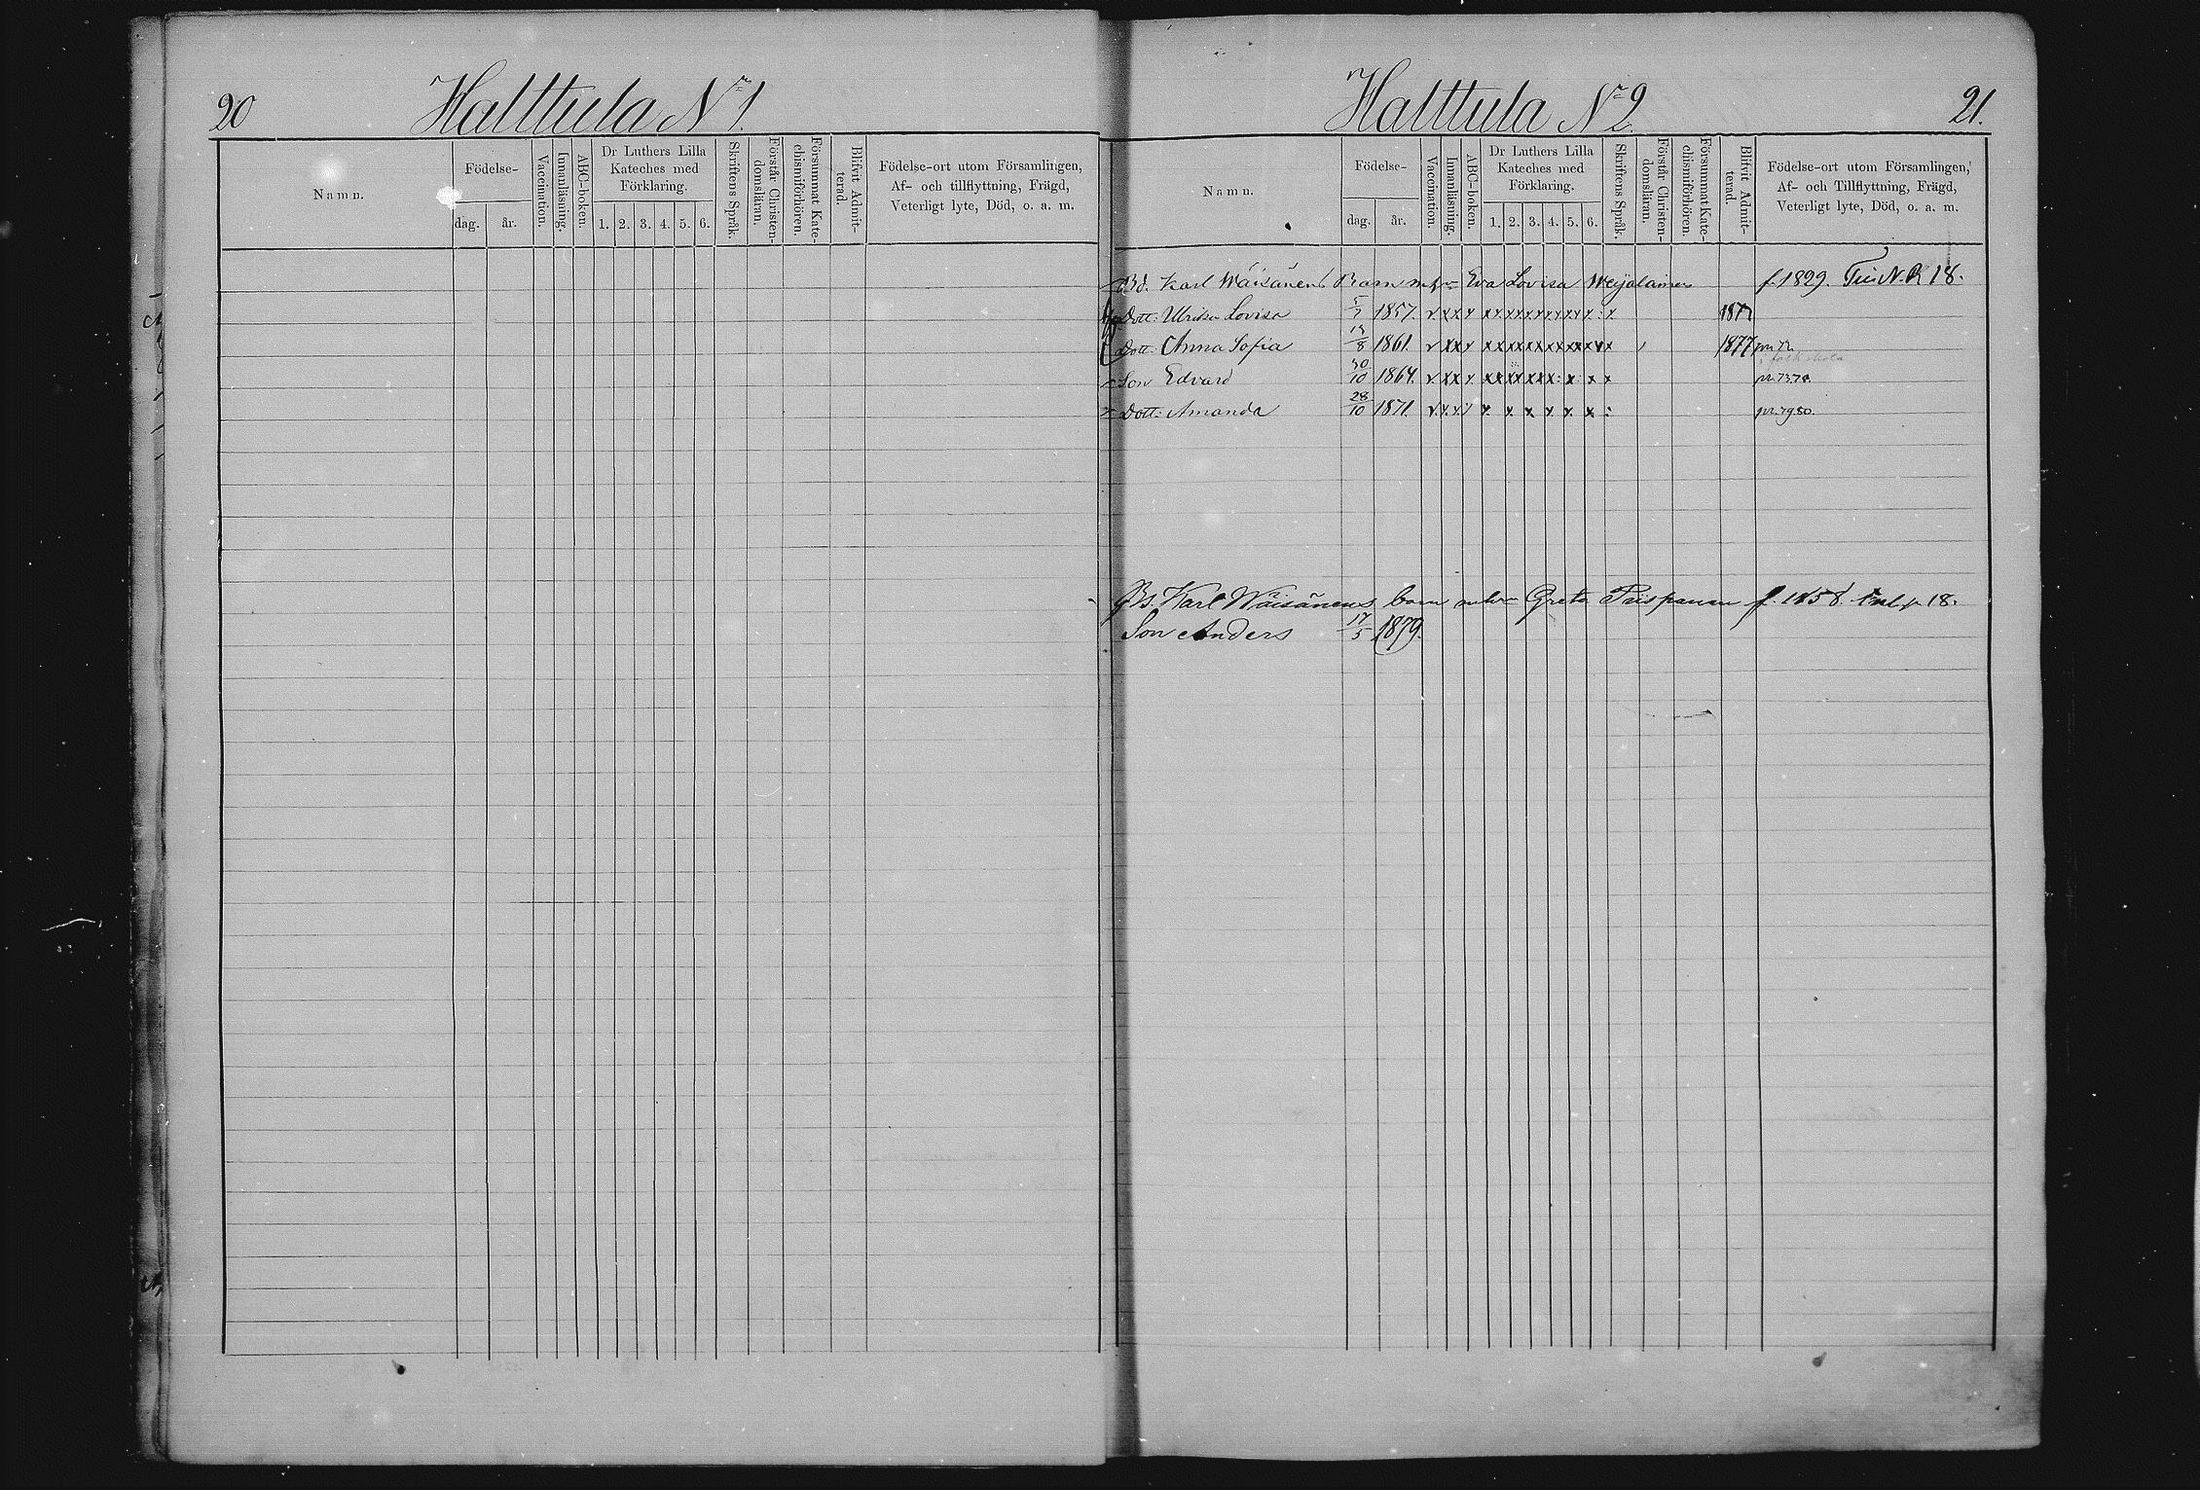 20 Halttula No 1.
Namn.
Födelse-
dag. år.
Vaccination.
Innanläsning.
ABC-boken.
Dr Luthers Lilla
Kateches med
Förklaring.
1. 2. 3. 4. 5. 6.
Skriftens Språk.
Förstår Christen-
domsläran.
Försummat Kate-
chismiförhören.
Blifvit Admit-
terad.
Födelse-ort utom Församlingen,
Af- och tillflyttning, Frägd,
Veterligt lyte, Död, o. a. m.
Halttula No 2. 21.
Namn.
Födelse-
dag. år.
Vaccination.
Innanläsning.
ABC-boken.
Dr Luthers Lilla
Kateches med
Förklaring.
1. 2. 3. 4. 5. 6.
Skriftens Språk.
Förstår Christen-
domsläran.
Försummat Kate-
chismiförhören.
Blifvit Admit-
terad.
Födelse-ort utom Församlingen,
Af- och Tillflyttning, Frägd,
Veterligt lyte, Död, o. a. m.
Bd. Karl Wäisänens Barn Eva Lovisa f. 1829. 18.
Dott: Ulrika Lovisa 5/7 1857.
Dott: Anna Sofia /8 1861. 1877
Son Edvard 30/10 1864.
Dott: Amanda 28/10 1871. pr. 79.80.
Bs. Karl Wäisänens barn Greta f. 1858. 18.
Son Anders 17/5 1879.